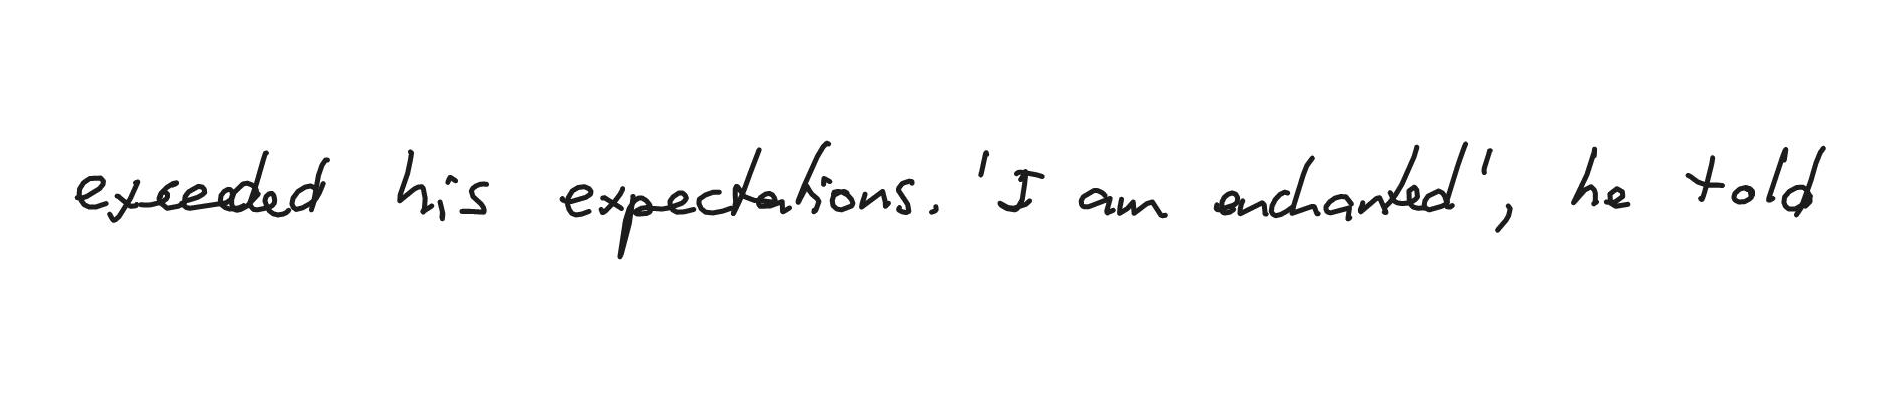 exceeded his expectations. 'I am enchanted', he told